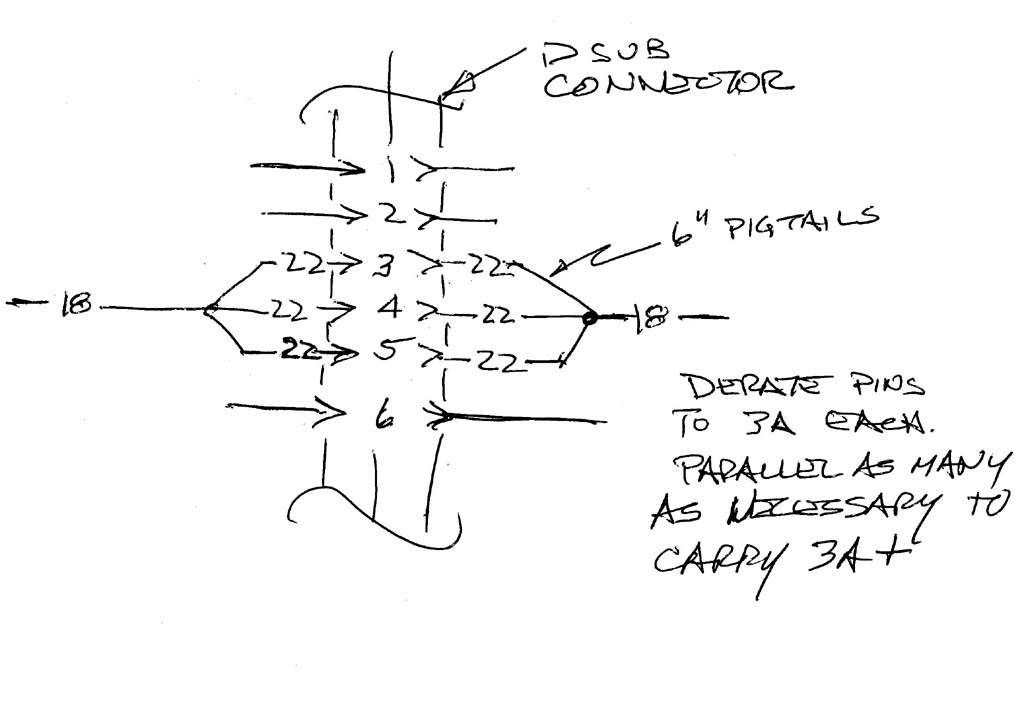 D SUB
CONNECTOR
1
2
6" PIGTAILS
22 3 22
18 22 4 22 18
22 5 22
6
DERATE PINS
TO 3A EACH.
PARALLEL AS MANY
AS NECESSARY TO
CARRY 3A+